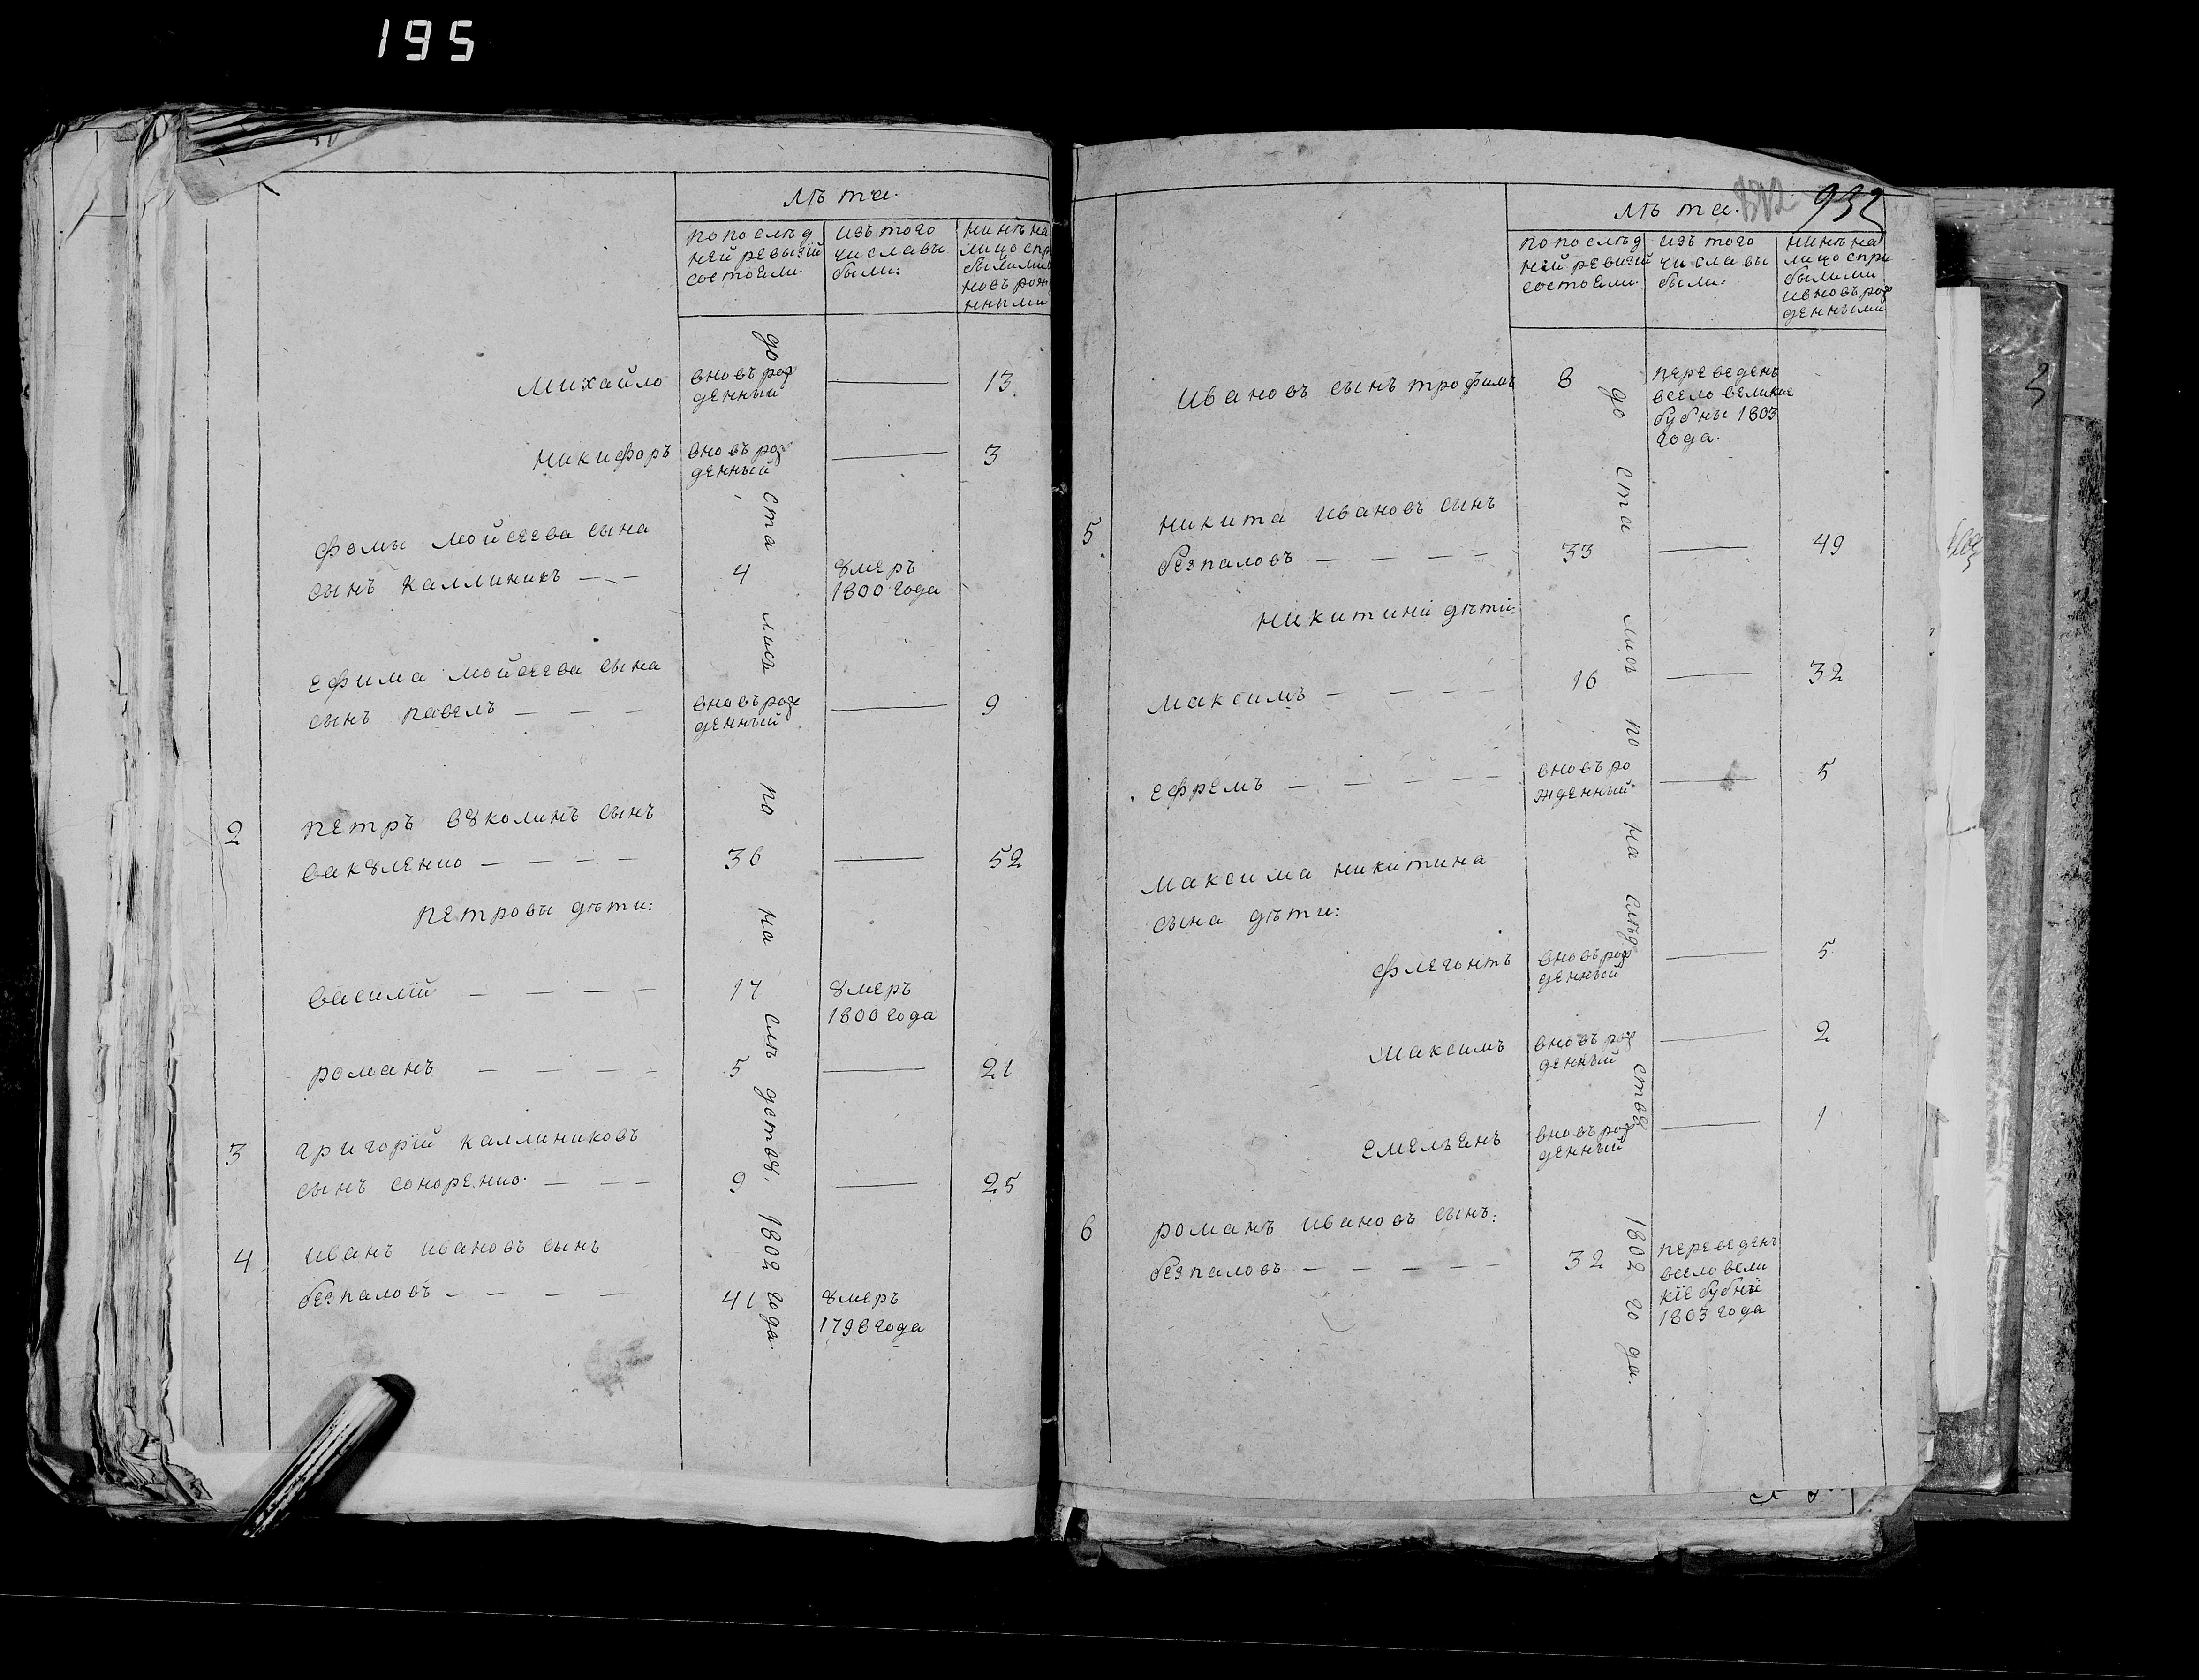 195
лѣта.
по послѣд
ней ревизїи
состояли.
изъ того
числа вы
были:
нынѣ на
лицо с при
былыми
новърож
нными
Михайло
вновь рож
денный
13
Никифоръ
вновь рож
денный
3
Фомы Мойсеева сына
сынъ Каллиникъ — —
4
ȣмеръ
1800 года
Ефима Мойсеева сына
сынъ Павелъ — — —
вновь рож
денный
9
2
Петръ Вȣколинъ сынъ
Вакȣленко — — — —
36
52
Петровы дѣти:
Василїй — — — —
17
ȣмеръ
1800 года
Романъ — — — —
5
21
3
Григорїй Каллиниковъ
сынъ — — —
9
25
4
Иванъ Ивановъ сынъ
Безпаловъ — — — —
41
ȣмеръ
1798 года
до ста лисъ по на слѣ дствȣ. 1802 года.
932
лѣта.
по послѣд
ней ревизїи
состояли.
изъ того
числа вы
были:
нынѣ на
лицо с при
былыми
и вновь рож
денными
Ивановъ сынъ Трофимъ
8
переведенъ
в село Великие
Бубны 1803
года.
5
Никита Ивановъ сынъ
Безпаловъ — — — —
33
49
Никитины дѣти:
Максимъ — — — —
16
32
Ефремъ — — — — —
вновь ро
жденный
5
Максима Никитина
сына дѣти:
Флегонтъ
вновь рож
денный
5
Максимъ
вновь рож
денный
2
Емельянъ
вновь рож
денный
1
6
Романъ Ивановъ сынъ:
Безпаловъ — — — — —
32
переведенъ
в село Вели
кїе Бубны
1803 года
до ста лисъ по на слѣд ствȣ 1802 го да.